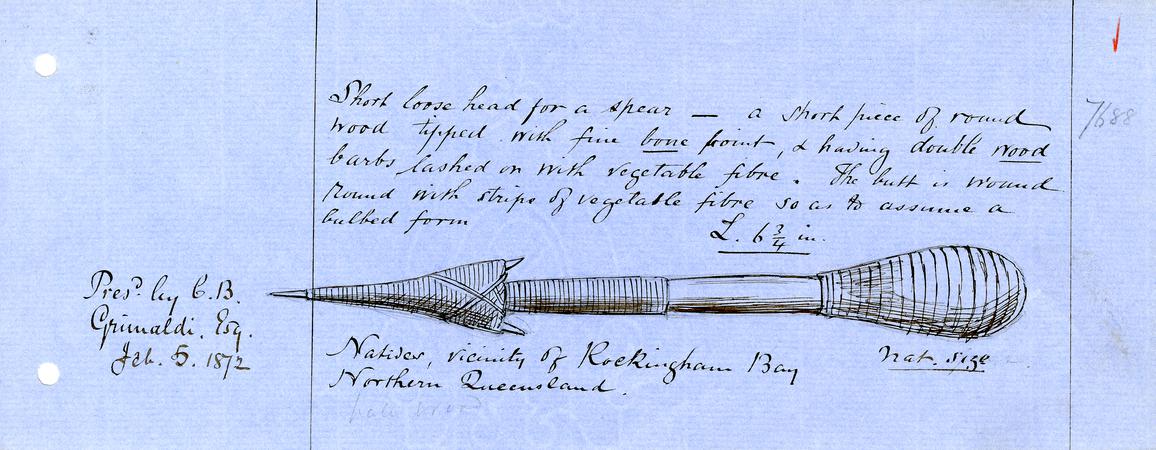 Short loose head for a spear — a short piece of round
wood tipped with fine bone point, & having double wood
barbs lashed on with vegetable fibre. The butt is wound
round with strips of vegetable fibre so as to assume a
bulbed form
L. 6 3/4 in.
7688
Pres.d by C.B.
Grimaldi. Esq.
Feb. 5. 1872
nat. size
Natives, vicinity of Rockingham Bay
Northern Queensland.